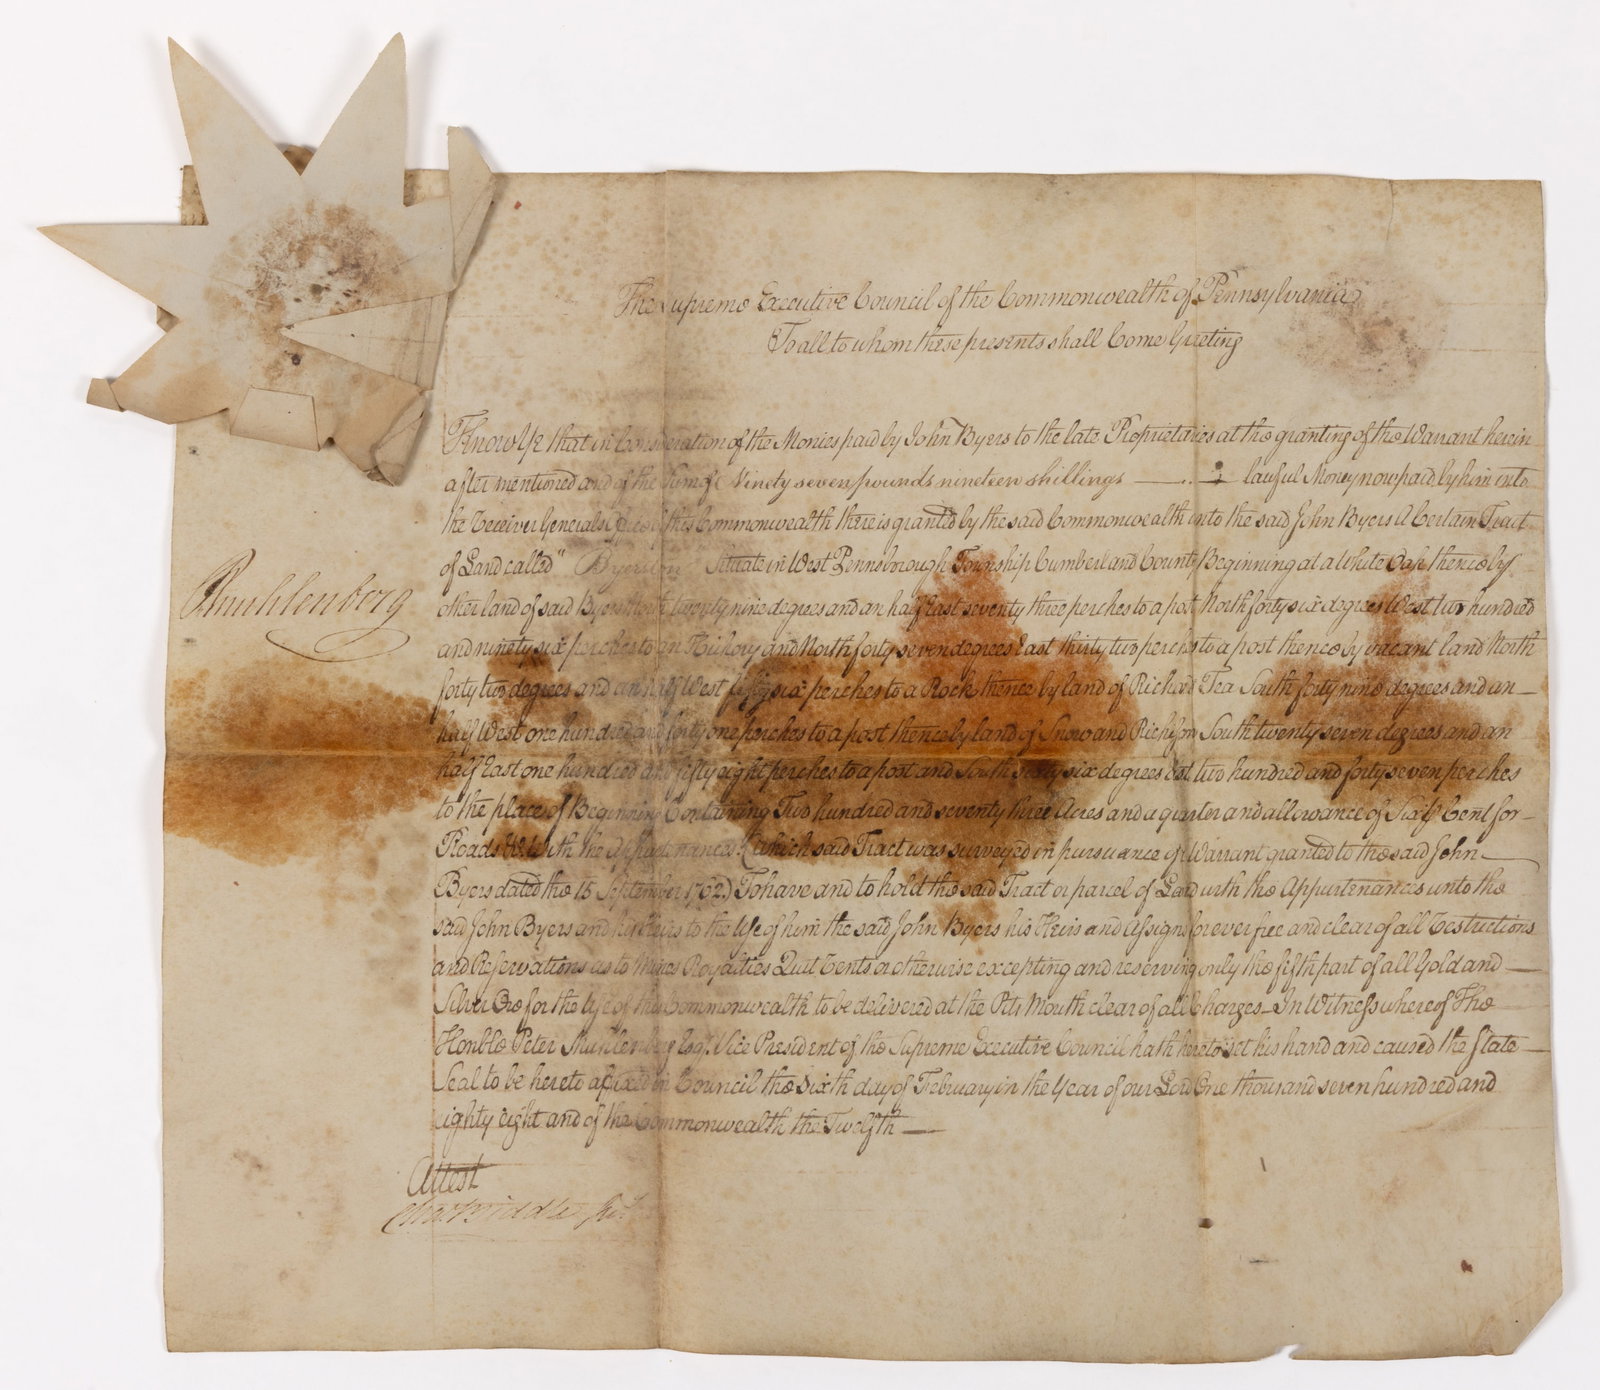 The Supreme Executive Council of the Commonwealth of Pennsylvania
To all to whom these presents shall Come Greeting
Know Ye that in Consideration of the Monies paid by John Byers to the late Proprietaries at the granting of the Warrant herein
after mentioned and of the Sum of Ninety seven pounds nineteen shillings lawful Money now paid by him into
the Receiver Generals Office of this Commonwealth there is granted by the said Commonwealth unto the said John Byers A Certain Tract
of Land called " Byerston " Situate in West Pennsborough Township Cumberland County Beginning at a White Oak thence by
other land of said Byers North twenty nine degrees and an half East seventy three perches to a post North forty six degrees West two hundred
and ninety six perches to an Hickory and North forty seven degrees East thirty two perches to a post thence by vacant land North
forty two degrees and an half West fifty six perches to a Rock thence by land of Richard Tea South forty nine degrees and an
half West one hundred and forty one perches to a post thence by land of Snow and Richison South twenty seven degrees and an
half East one hundred and fifty eight perches to a post and South sixty six degrees East two hundred and forty seven perches
to the place of Beginning Containing Two hundred and seventy three Acres and a quarter and allowance of Six ⅌ Cent for
Roads &c. With the Appurtenances (which said Tract was surveyed in pursuance of Warrant granted to the said John
Byers dated the 15 September 1762) To have and to hold the said Tract or parcel of Land with the Appurtenances unto the
said John Byers and his Heirs to the Use of him the said John Byers his Heirs and Assigns forever free and clear of all Restrictions
and Reservations as to Mines Royalties Quit Rents or otherwise excepting and reserving only the fifth part of all Gold and
Silver Ore for the Use of this Commonwealth to be delivered at the Pits Mouth clear of all Charges In Witness whereof The
Honble Peter Muhlenberg Esqr. Vice President of the Supreme Executive Council hath hereto set his hand and caused the State
Seal to be hereto affixed in Council the Sixth day of February in the Year of our Lord One thousand seven hundred and
eighty eight and of the Commonwealth the Twelfth
P Muhlenberg
Attest
Chas Biddle Secy.